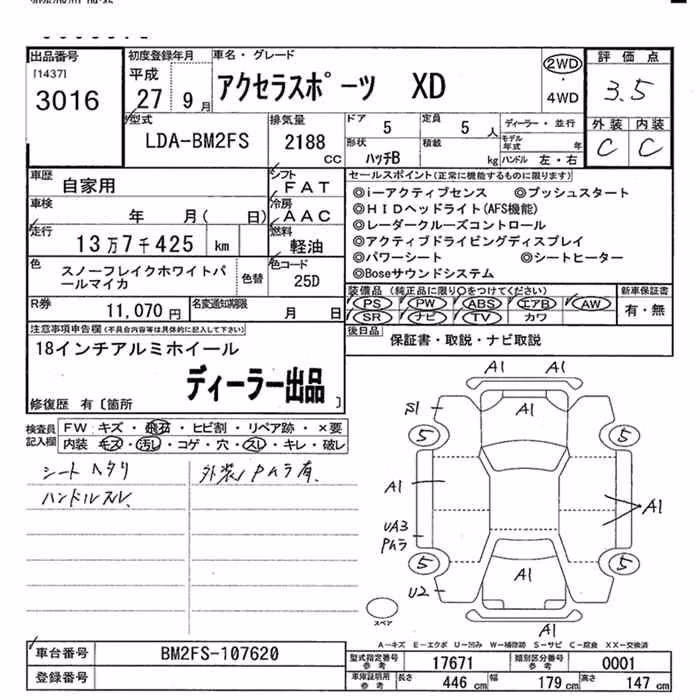 出品番号
[1437]
3016
初度登録年月
平成
27 9月
車名・グレード
アクセラスポーツ XD
2WD
・
4WD
評価点
3.5
外装 内装
C C
型式
LDA-BM2FS
排気量
2188
CC
ドア
5
定員
5人
形状
ハッチB
積載
kg
ディーラー・並行
モデル年式 年
ハンドル 左・右
車歴
自家用
シフト
FAT
車検
年 月( 日)
冷房
AAC
走行
13万7千425 km
燃料
軽油
色
スノーフレイクホワイトパールマイカ
色替
色コード
25D
R券
11,070円
名変通知期限
月 日
セールスポイント(正常に機能するものに限ります)
◎i－アクティブセンス ◎プッシュスタート
◎HIDヘッドライト(AFS機能)
◎レーダークルーズコントロール
◎アクティブドライビングディスプレイ
◎パワーシート ◎シートヒーター
◎Boseサウンドシステム
装備品 (純正品に限り○をつけてください)
PS PW ABS エアB AW
SR ナビ TV カワ
新車保証書
有・無
後日品
保証書・取説・ナビ取説
注意事項申告欄(不具合内容等は具体的に記入して下さい)
18インチアルミホイール
ディーラー出品
修復歴 有〔箇所 〕
検査員記入欄
FW キズ・飛石・ヒビ割・リペア跡・×要
内装 キズ・汚レ・コゲ・穴・スレ・キレ・破レ
シートヘタリ
ハンドルスレ、
外装小PムラA有、
A1 A1
S1
A1
5 5
A1
A1
UA3
Pムラ
5 5
A1
U2
A1
スペア
A－キズ E－エクボ U－凹み W－補修跡 S－サビ C－腐食 XX－交換済
車台番号
BM2FS-107620
登録番号
型式指定番号参考
17671
類別区分番号参考
0001
車庫証明用参考
長さ 446cm 幅 179cm 高さ 147cm